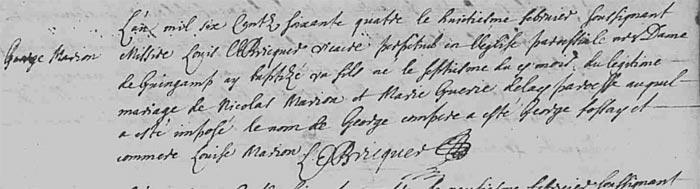 L'an mil six Cents soixante quatre le huictiesme febvrier soussignant
George Marion
Missire Louis Le Bricquer vicaire perpetuel en l'eglise parrossiale nre Dame
de Guingamp ay baptizé un fils né le septiesme du pnt mois du legitime
mariage de Nicolas Marion et Marie Guerre de la parroesse auquel
a esté imposé le nom de George compere a esté George et
commere Louise Marion L Bricquer
soussignant